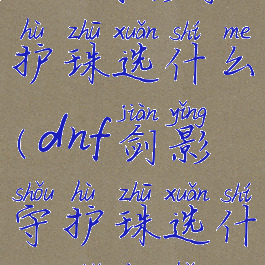 hù zhū xuǎn shí me
护珠选什么
jiàn yǐng
(dnf剑影
shǒu hù zhū xuǎn shí
守护珠选什